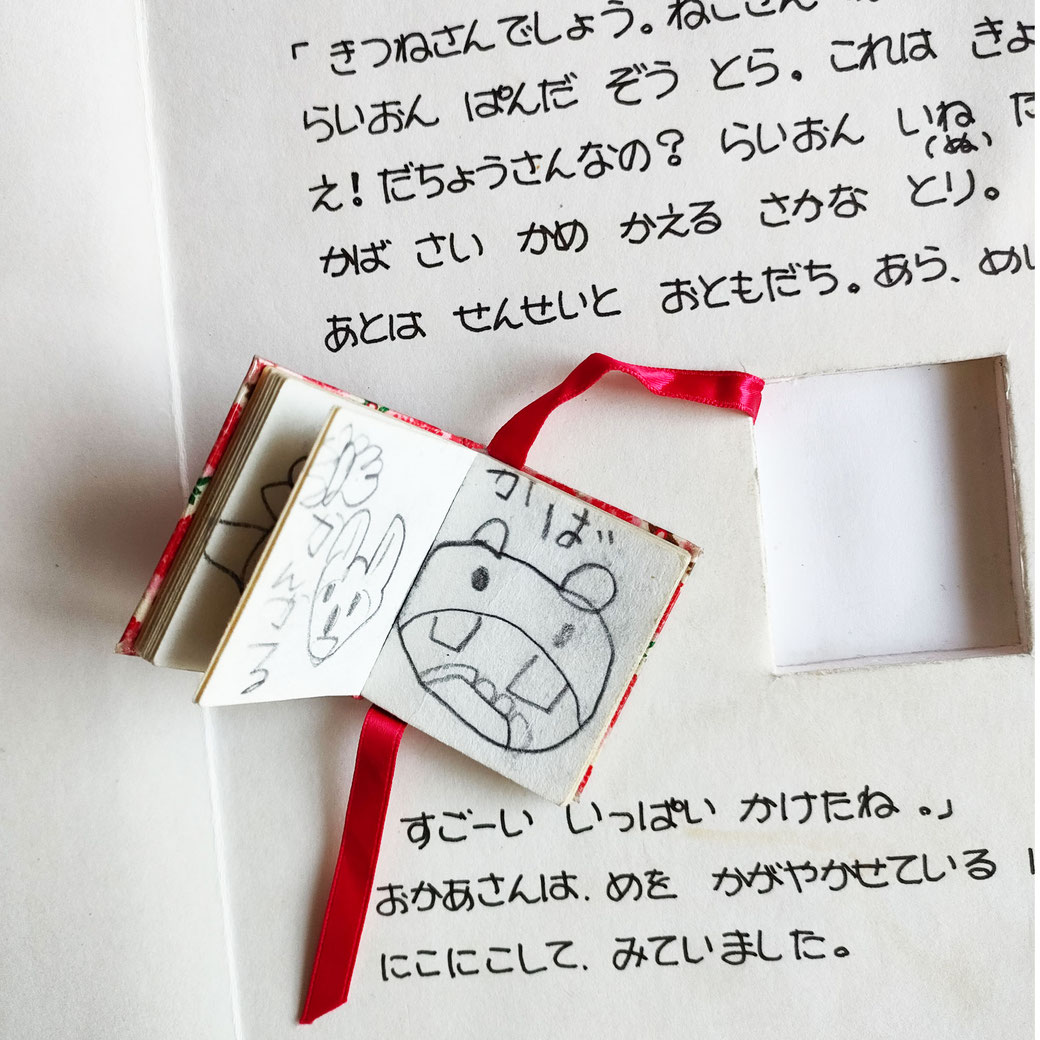 「きつねさんでしょう。ねこさん
らいおん ぱんだ ぞう とら。これは きょ
え!だちょうさんなの?らいおん いね
(ぬ)
かば さい かめ かえる さかな とり。
あとは せんせいと おともだち。あら、めい
かば
かんがる
すごーい いっぱい かけたね。」
おかあさんは、めを かがやかせている
にこにこして、みていました。